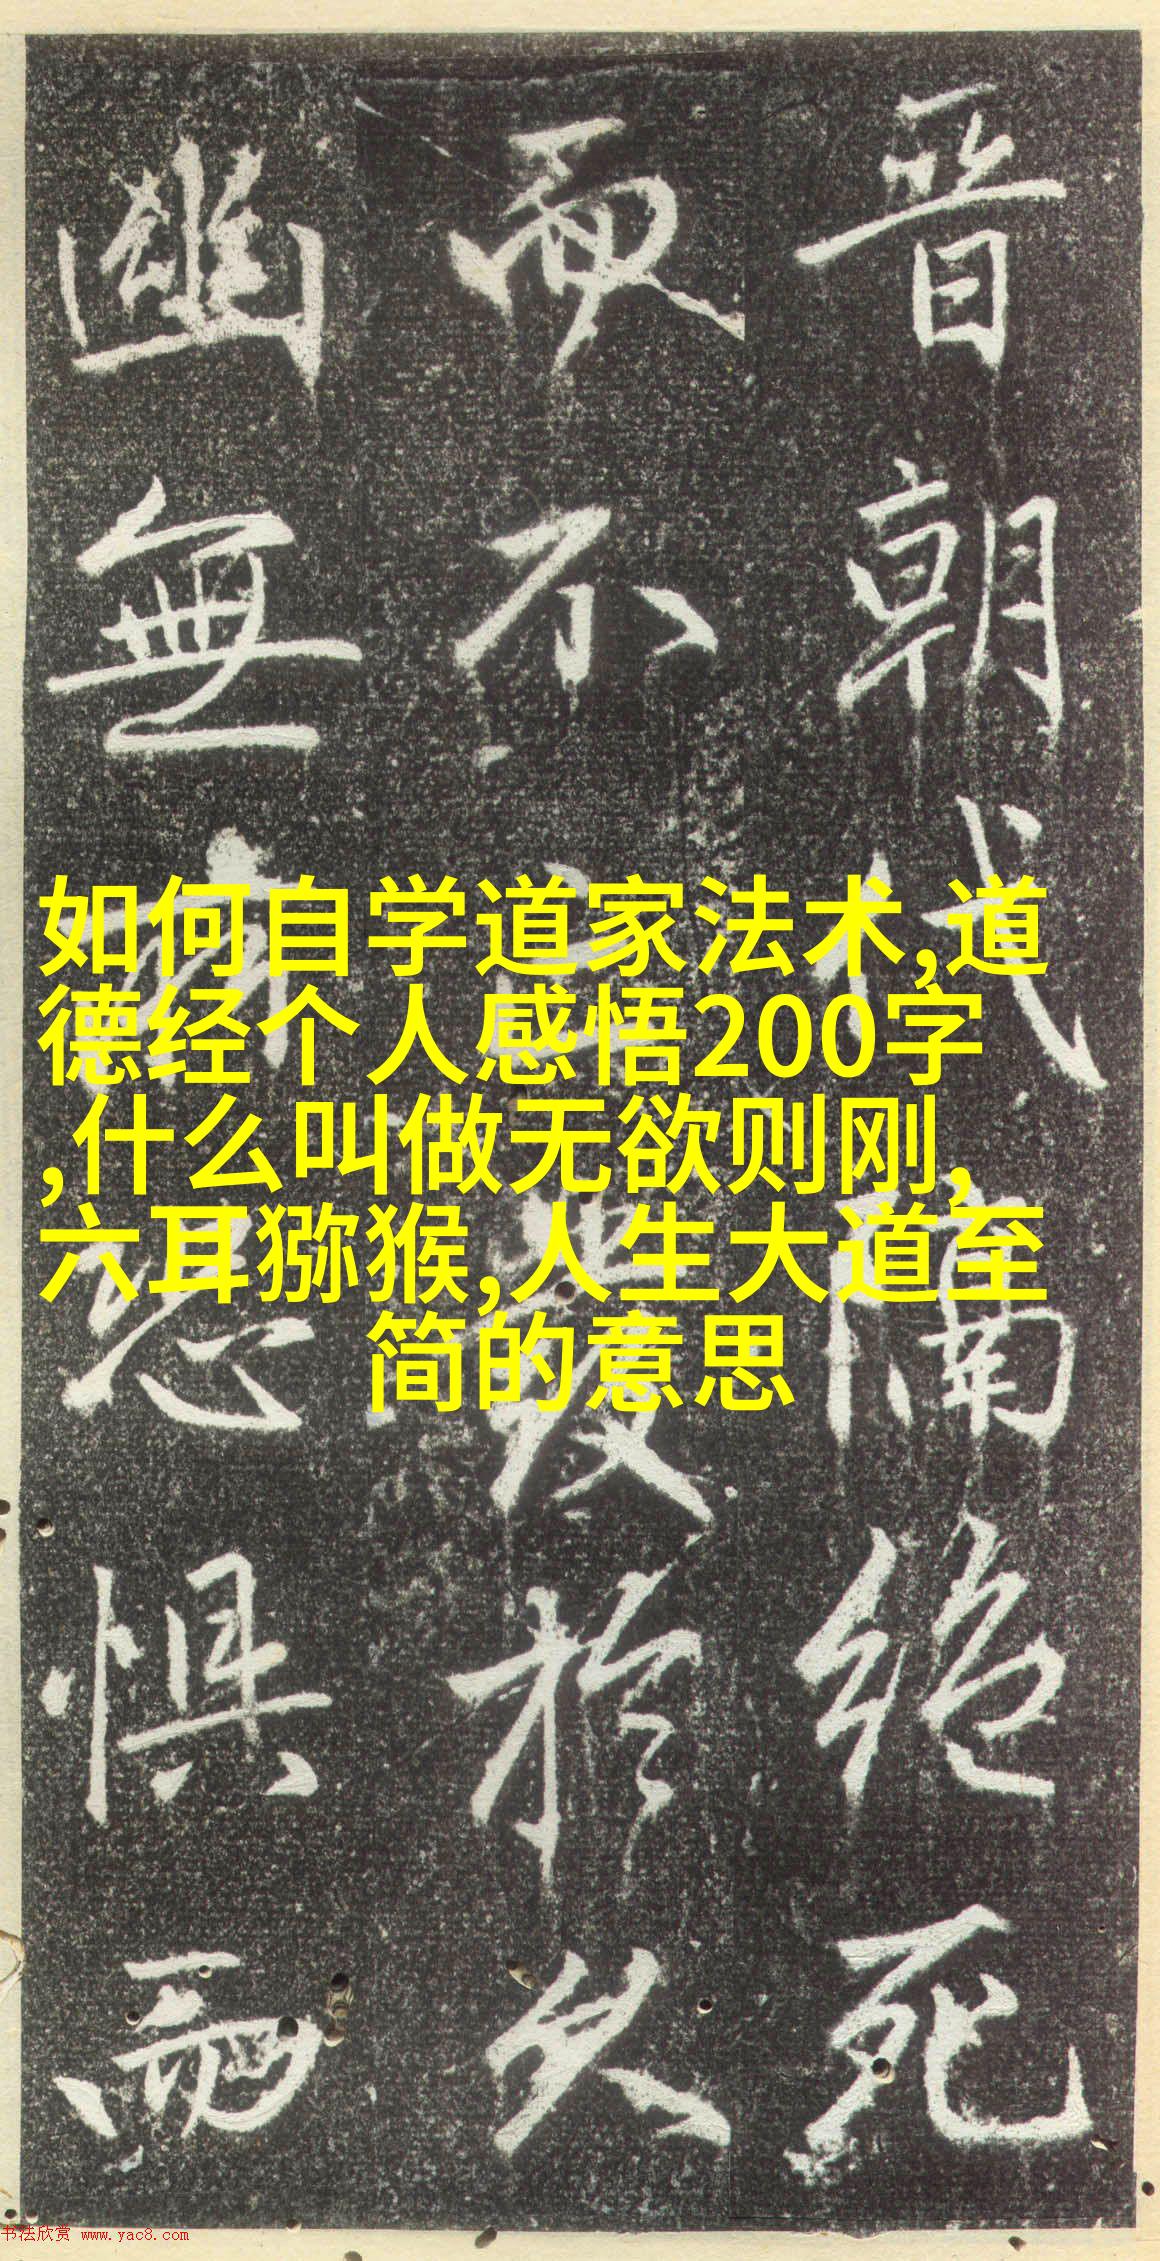 朝代隔絶死
而不於久
幽無惧而
如何自学道家法术,道
德经个人感悟200字
,什么叫做无欲则刚,
六耳猕猴,人生大道至
简的意思
书法欣赏 www.yac8.com